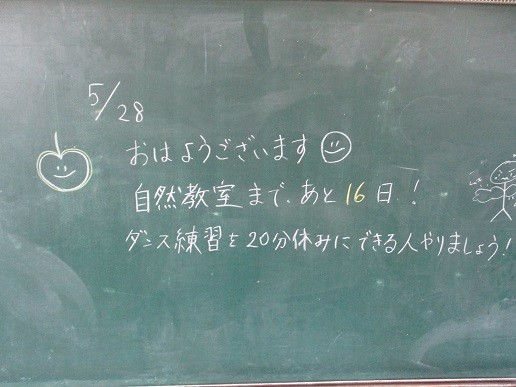 5/28
おはようございます
自然教室まで、あと16日!
ダンス練習を20分休みにできる人やりましょう!